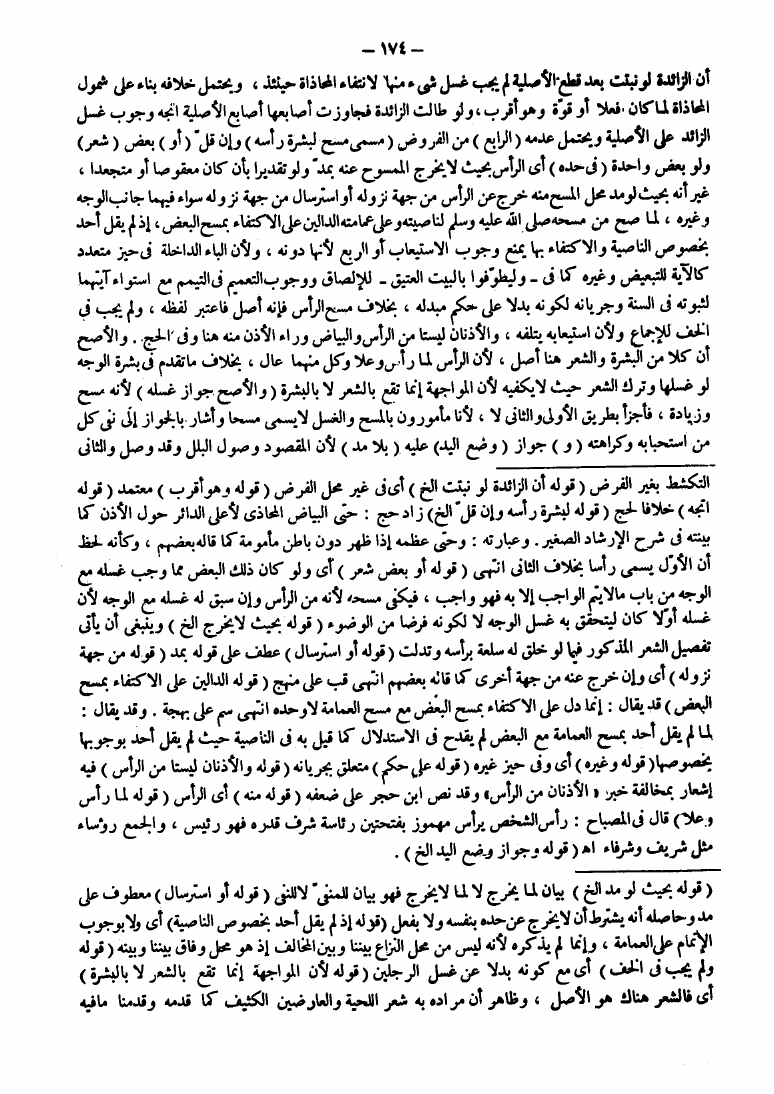 – ١٧٤ –
أن الزائدة لو نبتت بعد قطع الأصلية لم يجب غسل شيء منها لانتفاء المحاذاة حينئذ ، ويحتمل خلافه بناء على شمول
المحاذاة لما كان فعلا أو قوّة وهو أقرب ، ولو طالت الزائدة فجاوزت أصابعها أصابع الأصلية اتجه وجوب غسل
الزائد على الأصلية ويحتمل عدمه ( الرابع ) من الفروض ( مسمى مسح لبشرة رأسه ) وإن قل ( أو ) بعض ( شعر )
ولو بعض واحدة ( فى حده ) أى الرأس بحيث لا يخرج الممسوح عنه بمد ولو تقديرا بأن كان معقوصا أو متجعدا ،
غير أنه بحيث لو مد محل المسح منه خرج عن الرأس من جهة نزوله أو استرسال من جهة نزوله سواء فيهما جانب الوجه
وغيره ، لما صح من مسحه صلى الله عليه وسلم لناصيته وعلى عمامته الدالين على الاكتفاء بمسح البعض ، إذ لم يقل أحد
بخصوص الناصية والاكتفاء بها يمنع وجوب الاستيعاب أو الربع لأنها دونه ، ولأن الباء الداخلة فى حيز متعدد
كالآية للتبعيض وغيره كما فى ـ وليطوّفوا بالبيت العتيق ـ للإلصاق ووجوب التعميم فى التيمم مع استواء آيتهما
لثبوته فى السنة وجريانه لكونه بدلا على حكم مبدله ، بخلاف مسح الرأس فإنه أصل فاعتبر لفظه ، ولم يجب فى
الخف للإجماع ولأن استيعابه يتلفه ، والأذنان ليستا من الرأس والبياض وراء الأذن منه هنا وفى الحج . والأصح
أن كلا من البشرة والشعر هنا أصل ، لأن الرأس لما رأس وعلا وكل منهما عال ، بخلاف ما تقدم فى بشرة الوجه
لو غسلها وترك الشعر حيث لا يكفيه لأن المواجهة إنما تقع بالشعر لا بالبشرة ( والأصح جواز غسله ) لأنه مسح
وزيادة ، فأجزأ بطريق الأولى والثانى لا ، لأنا مأمورون بالمسح والغسل لا يسمى مسحا وأشار بالجواز إلى نفى كل
من استحبابه وكراهته ( و ) جواز ( وضع اليد ) عليه ( بلا مد ) لأن المقصود وصول البلل وقد وصل والثانى
التكشط بغير الفرض ( قوله أن الزائدة لو نبتت الخ ) أى فى غير محل الفرض ( قوله وهو أقرب ) معتمد ( قوله
اتجه ) خلافا لحج ( قوله لبشرة رأسه وإن قل الخ ) زاد حج : حتى البياض المحاذى لأعلى الدائر حول الأذن كما
بينته فى شرح الإرشاد الصغير . وعبارته : وحتى عظمه إذا ظهر دون باطن مأمومة كما قاله بعضهم ، وكأنه لحظ
أن الأوّل يسمى رأسا بخلاف الثانى انتهى ( قوله أو بعض شعر ) أى ولو كان ذلك البعض مما وجب غسله مع
الوجه من باب مالايتم الواجب إلا به فهو واجب ، فيكفى مسحه لأنه من الرأس وإن سبق له غسله مع الوجه لأن
غسله أوّلا كان ليتحقق به غسل الوجه لا لكونه فرضا من الوضوء ( قوله بحيث لايخرج الخ ) وينبغى أن يأتى
تفصيل الشعر المذكور فيما لو خلق له سلعة برأسه وتدلت ( قوله أو استرسال ) عطف على قوله بمد ( قوله من جهة
نزوله ) أى وإن خرج عنه من جهة أخرى كما قاله بعضهم انتهى قب على منهج ( قوله الدالين على الاكتفاء بمسح
البعض ) قد يقال : إنما دل على الاكتفاء بمسح البعض مع مسح العمامة لاوحده انتهى سم على بهجة . وقد يقال :
لما لم يقل أحد بمسح العمامة مع البعض لم يقدح فى الاستدلال كما قيل به فى الناصية حيث لم يقل أحد بوجوبها
بخصوصها ( قوله وغيره ) أى وفى حيز غيره ( قوله على حكم ) متعلق بجريانه ( قوله والأذنان ليستا من الرأس ) فيه
إشعار بمخالفة خبر « الأذنان من الرأس » وقد نص ابن حجر على ضعفه ( قوله منه ) أى الرأس ( قوله لما رأس
وعلا ) قال فى المصباح : رأس الشخص يرأس مهموز بفتحتين رئاسة شرف قدره فهو رئيس ، والجمع رؤساء
مثل شريف وشرفاء اه ( قوله وجواز وضع اليد الخ ) .
( قوله بحيث لو مد الخ ) بيان لما يخرج لا لما لايخرج فهو بيان للمنفى لاللنفى ( قوله أو استرسال ) معطوف على
مد وحاصله أنه يشترط أن لايخرج عن حده بنفسه ولا بفعل ( قوله إذ لم يقل أحد بخصوص الناصية ) أى ولا بوجوب
الإتمام على العمامة ، وإنما لم يذكره لأنه ليس من محل النزاع بيننا وبين المخالف إذ هو محل وفاق بيننا وبينه ( قوله
ولم يجب فى الخف ) أى مع كونه بدلا عن غسل الرجلين ( قوله لأن المواجهة إنما تقع بالشعر لا بالبشرة )
أى فالشعر هناك هو الأصل ، وظاهر أن مراده به شعر اللحية والعارضين الكثيف كما قدمه وقدمنا مافيه